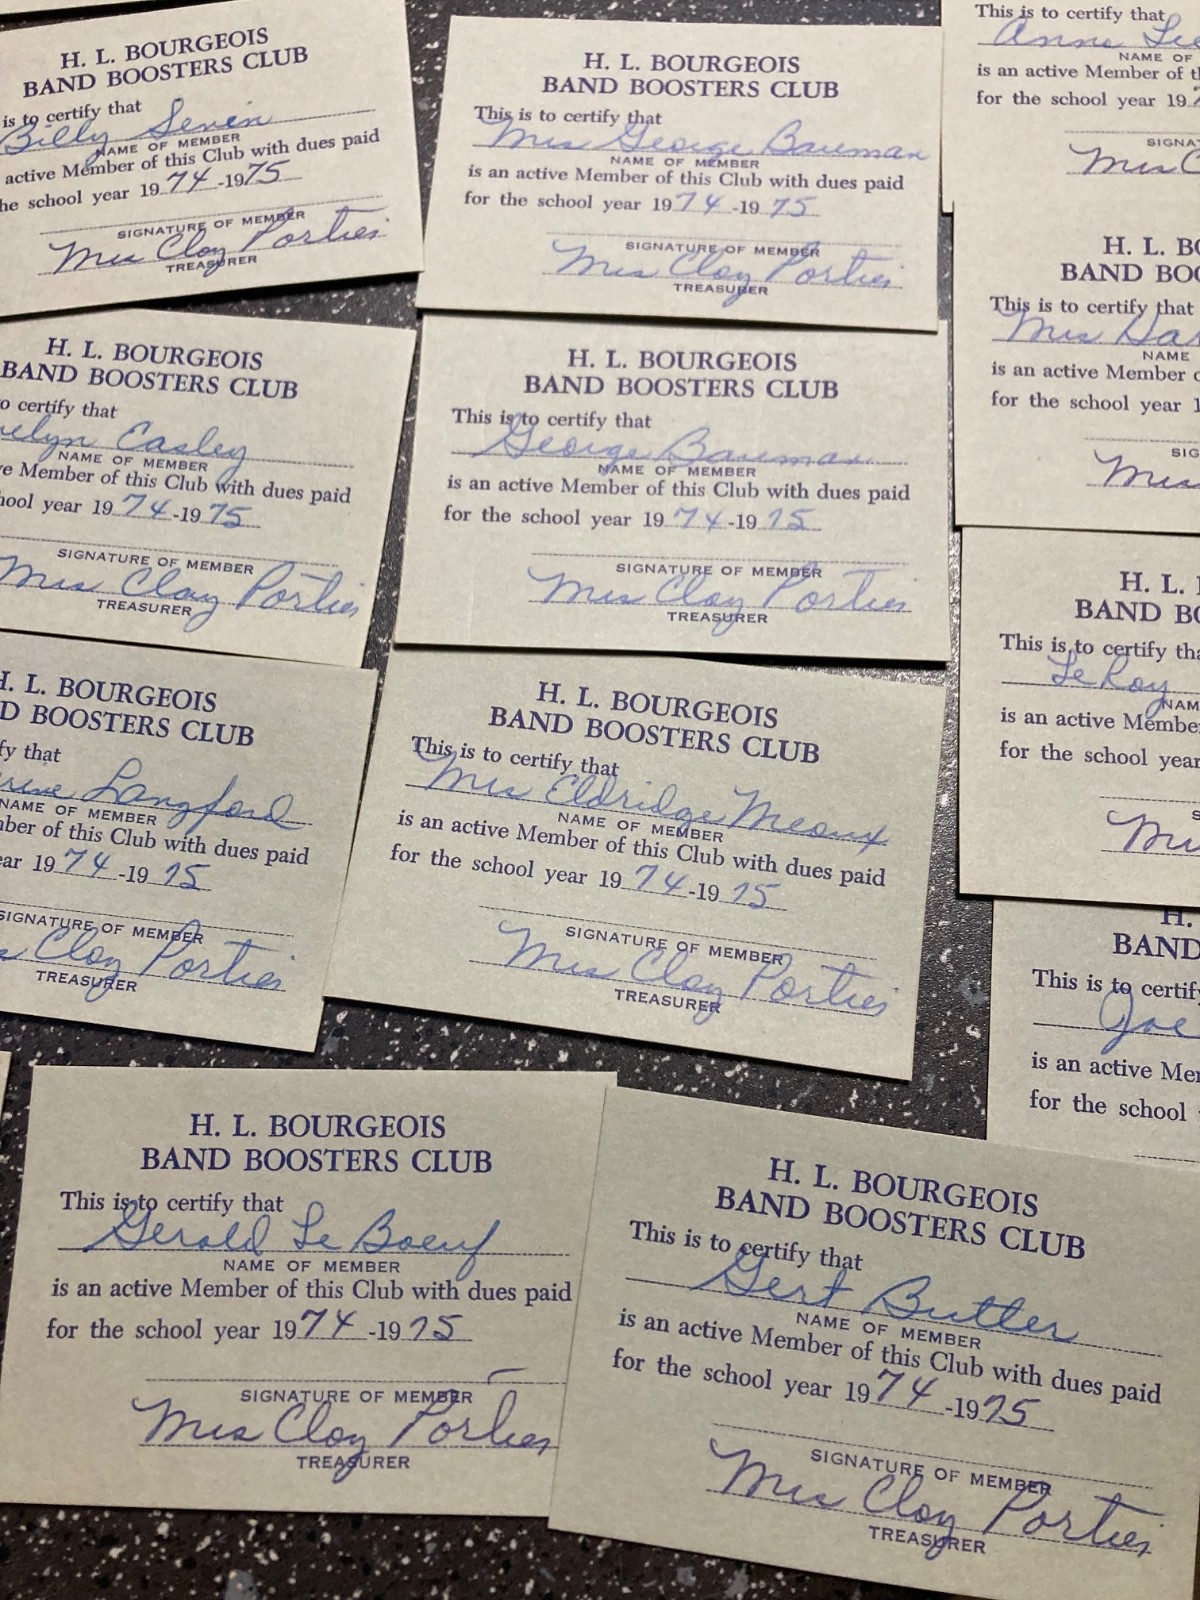 H. L. BOURGEOIS
BAND BOOSTERS CLUB
is to certify that
Billy Sevin
NAME OF MEMBER
active Member of this Club with dues paid
the school year 1974-1975
SIGNATURE OF MEMBER
Mrs Clay Portier
TREASURER
H. L. BOURGEOIS
BAND BOOSTERS CLUB
This is to certify that
Mrs George Bauman
NAME OF MEMBER
is an active Member of this Club with dues paid
for the school year 1974-1975
SIGNATURE OF MEMBER
Mrs Clay Portier
TREASURER
This is to certify that
Anna Lee
NAME OF
is an active Member of
for the school year 197
SIGNA
Mrs C
H. L. BOURGEOIS
BAND BOOSTERS CLUB
to certify that
Easley
NAME OF MEMBER
Member of this Club with dues paid
school year 1974-1975
SIGNATURE OF MEMBER
Mrs Clay Portier
TREASURER
H. L. BOURGEOIS
BAND BOOSTERS CLUB
This is to certify that
George Bauman
NAME OF MEMBER
is an active Member of this Club with dues paid
for the school year 1974-1975
SIGNATURE OF MEMBER
Mrs Clay Portier
TREASURER
H. L. BO
BAND BOO
This is to certify that
Mrs Har
NAME
is an active Member
for the school year 1
SIG
Mrs
H. L. BOURGEOIS
D BOOSTERS CLUB
fy that
Langford
NAME OF MEMBER
mber of this Club with dues paid
ear 1974-1975
SIGNATURE OF MEMBER
Clay Portier
TREASURER
H. L. BOURGEOIS
BAND BOOSTERS CLUB
This is to certify that
Mrs Eldridge Meaux
NAME OF MEMBER
is an active Member of this Club with dues paid
for the school year 1974-1975
SIGNATURE OF MEMBER
Mrs Clay Portier
TREASURER
H. L.
BAND BO
This is to certify tha
LeRoy
NAM
is an active Member
for the school year
S
H.
BAND
This is to certify
Joe
is an active Mem
for the school
H. L. BOURGEOIS
BAND BOOSTERS CLUB
This is to certify that
Gerald Le Boeuf
NAME OF MEMBER
is an active Member of this Club with dues paid
for the school year 1974-1975
SIGNATURE OF MEMBER
Mrs Clay Portier
TREASURER
H. L. BOURGEOIS
BAND BOOSTERS CLUB
This is to certify that
Gert Butler
NAME OF MEMBER
is an active Member of this Club with dues paid
for the school year 1974-1975
SIGNATURE OF MEMBER
Mrs Clay Portier
TREASURER